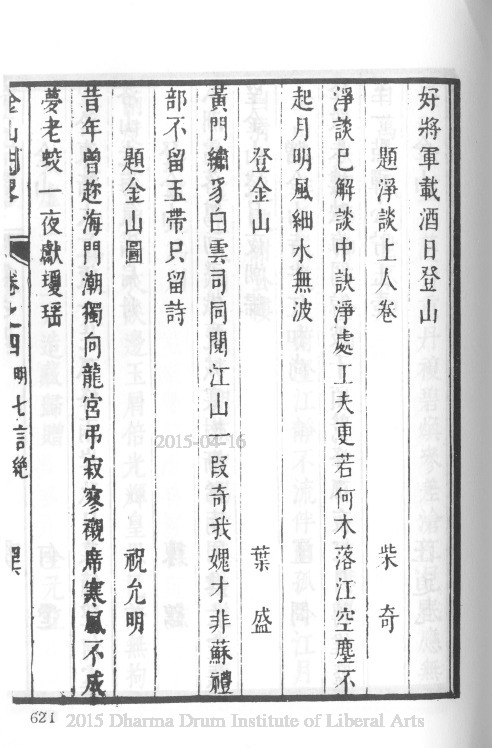 好將軍載酒日登山
題淨談上人卷　柴奇
淨談巳解談中訣淨處工夫更若何木落江空塵不
起月明風細水無波
登金山　葉盛
黃門繡豸白雲司同閱江山一段奇我媿才非蘇禮
部不留玉帶只留詩
題金山圖　祝允明
昔年曾趂海門潮獨向龍宮弔寂寥襯席寒風不成
夢老蛟一夜獻瓊瑶
金山 卷之四 明七言絕
621
2015-04-16
2015 Dharma Drum Institute of Liberal Arts